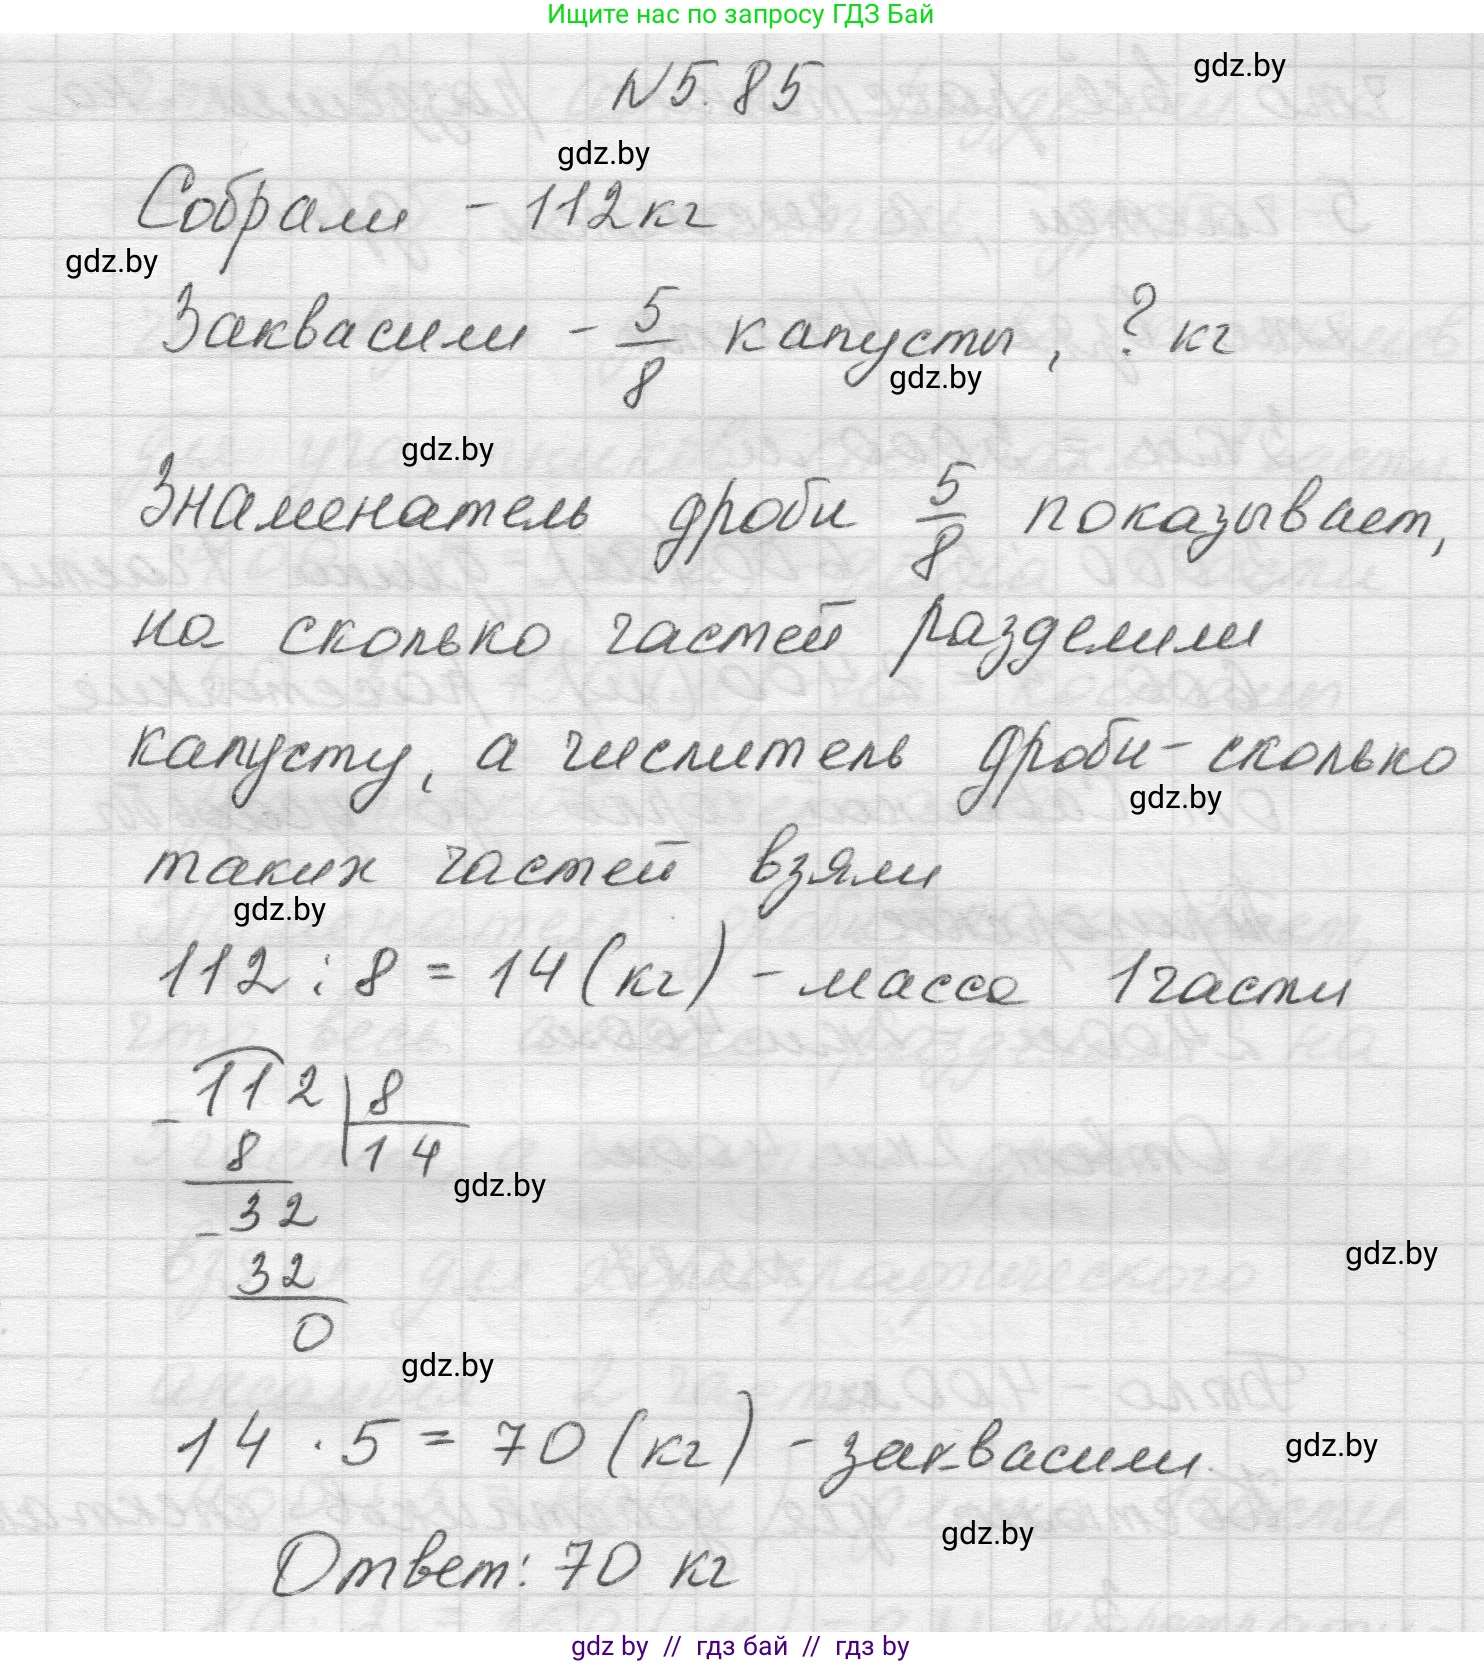 Ищите нас по запросу ГДЗ Бай
N 5.85
gdz.by
gdz.by
Собрали - 112 кг
gdz.by
Заквасили - 5/8 капусты, ? кг
gdz.by
gdz.by
Знаменатель дроби 5/8 показывает,
на сколько частей разделили
капусту, а числитель дроби - сколько
gdz.by
таких частей взяли
gdz.by
112 : 8 = 14 (кг) - масса 1 части
112 | 8
- 8 | 14
gdz.by
- 32
gdz.by
32
0
gdz.by
14 · 5 = 70 (кг) - заквасили.
gdz.by
gdz.by
Ответ: 70 кг
gdz by // гдз бай // гдз by